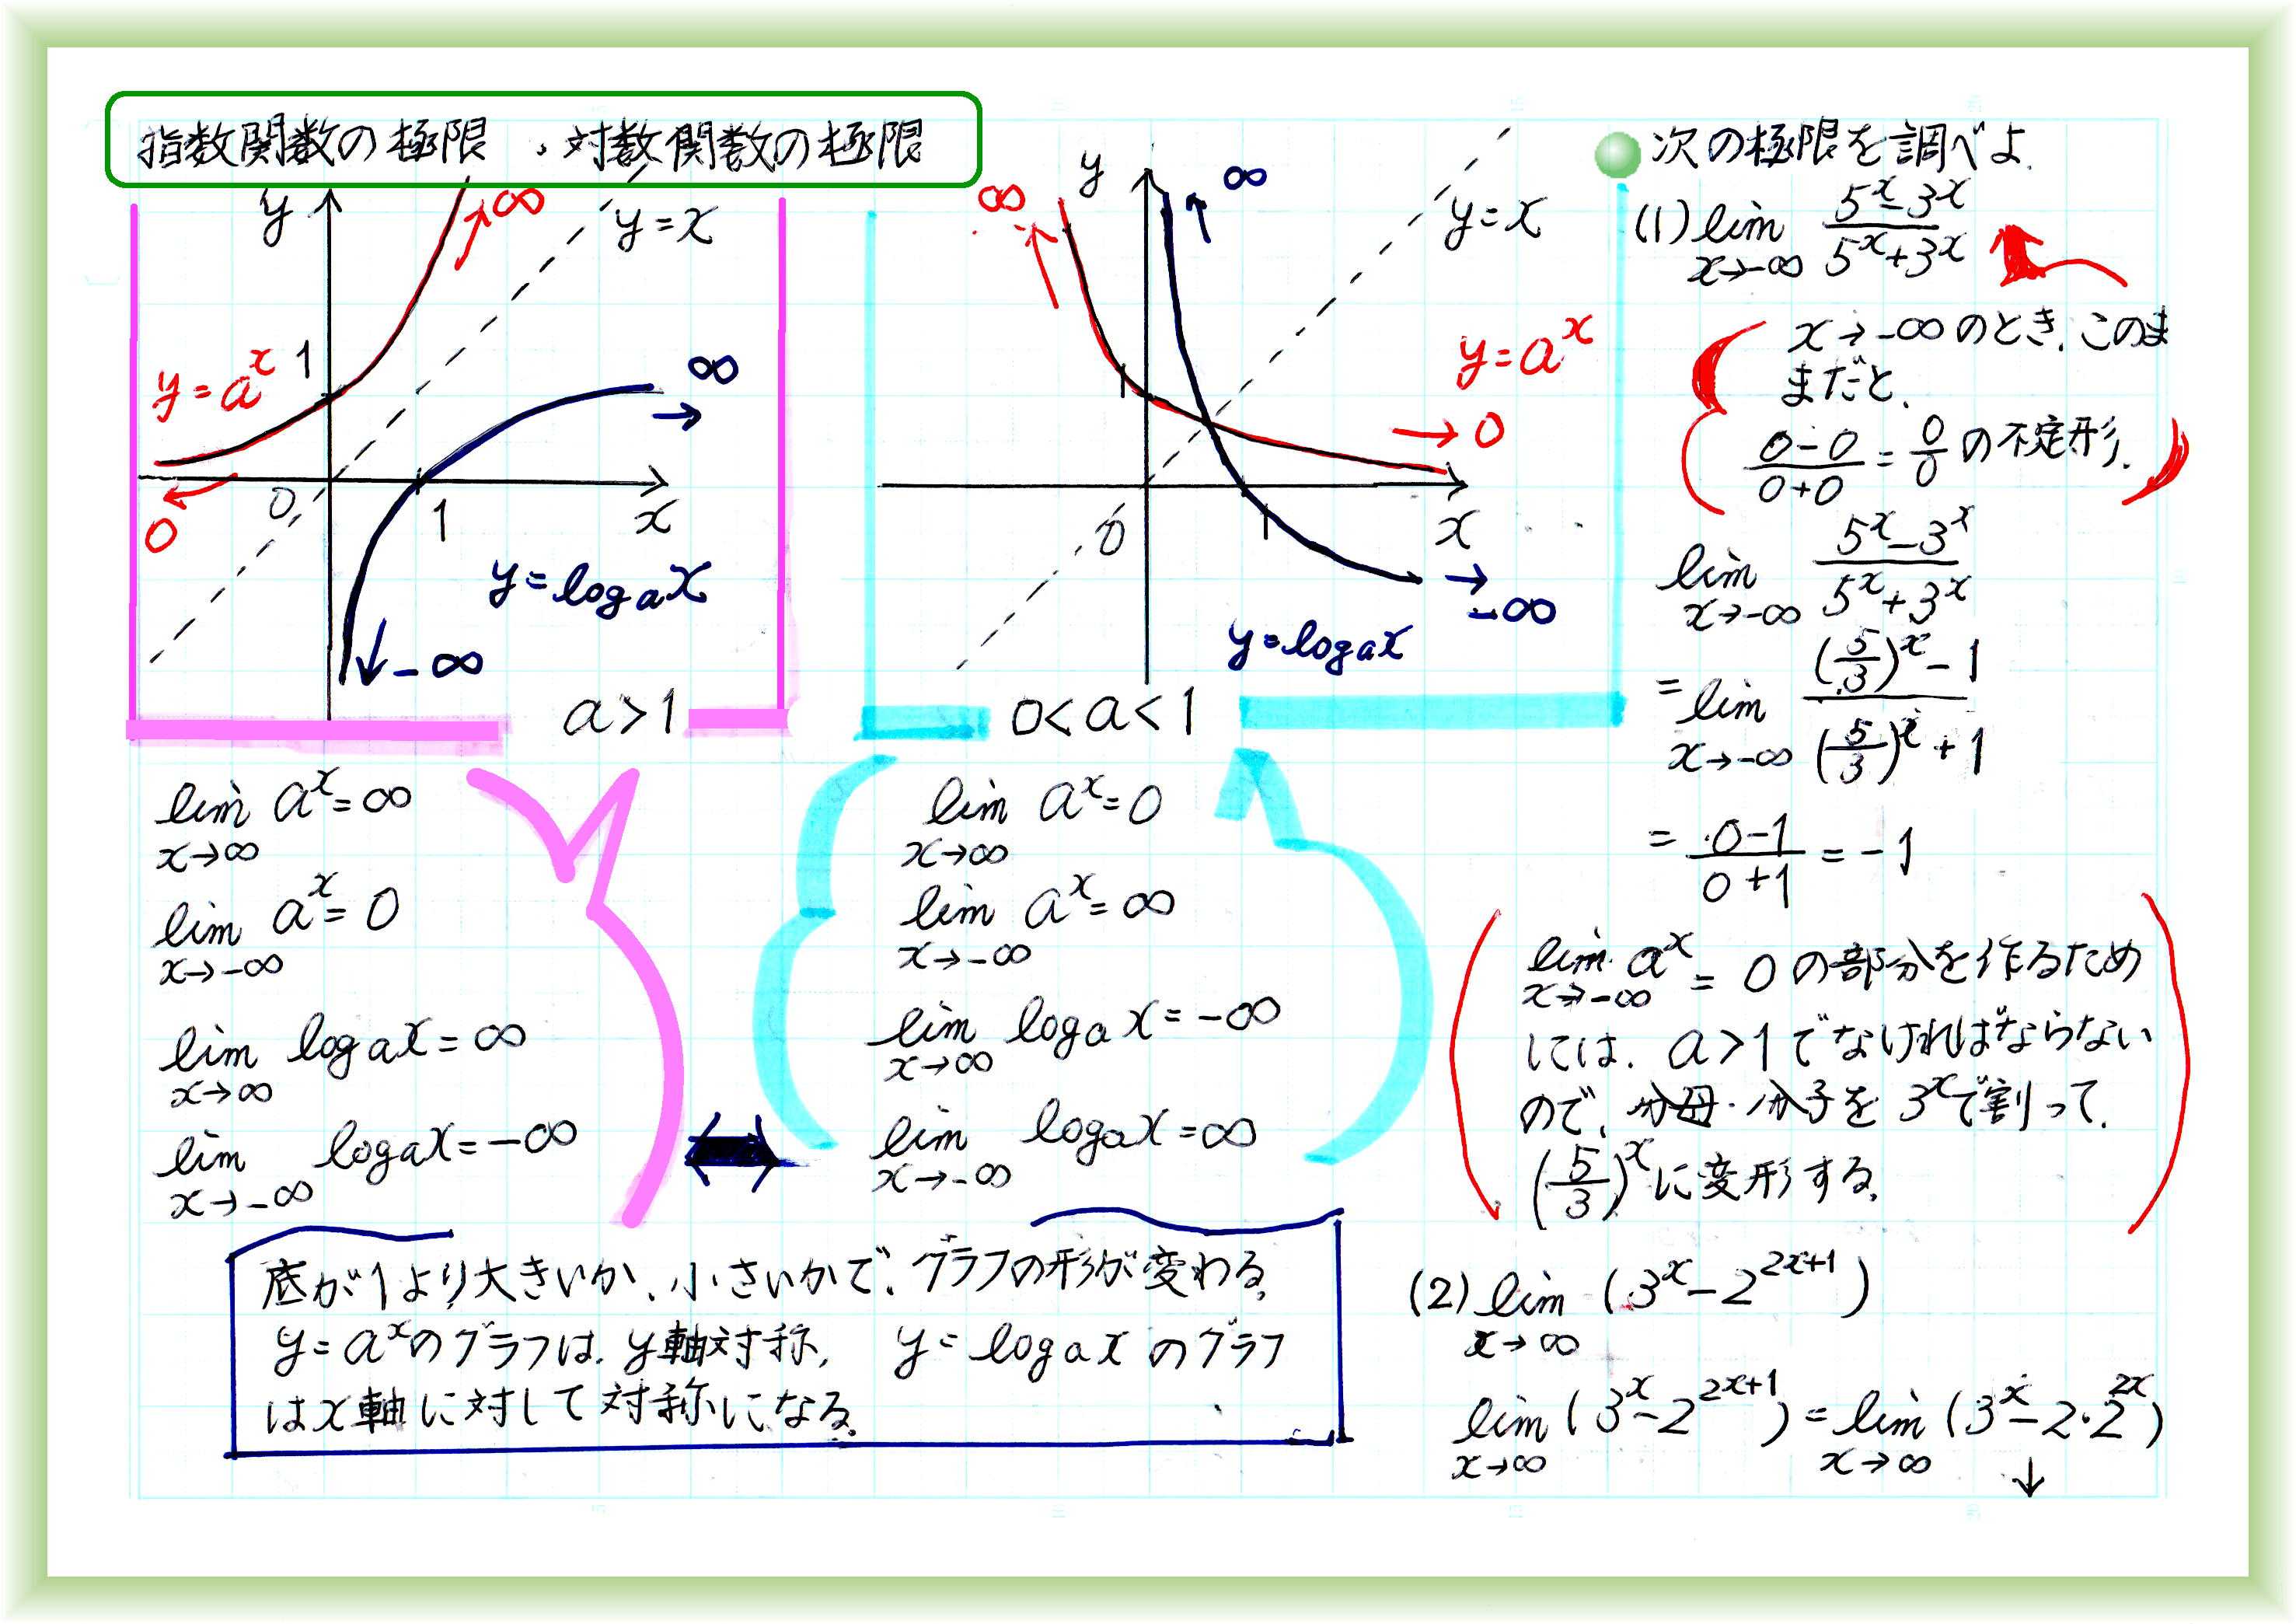 指数関数の極限、対数関数の極限
y
∞
y=x
y=a^x
1
∞
0
0
1
x
y=log_a x
-∞
a>1
∞
y
∞
y=x
y=a^x
1
0
0
1
x
-∞
y=log_a x
0<a<1
lim a^x=∞
x→∞
lim a^x=0
x→-∞
lim log_a x=∞
x→∞
lim log_a x=-∞
x→-∞
lim a^x=0
x→∞
lim a^x=∞
x→-∞
lim log_a x=-∞
x→∞
lim log_a x=∞
x→-∞
底が1より大きいか、小さいかで、グラフの形が変わる。
y=a^xのグラフは、y軸対称、 y=log_a x のグラフ
はx軸に対して対称になる。
次の極限を調べよ。
(1) lim (5^x-3^x)/(5^x+3^x)
x→-∞
x→-∞のとき、このま
まだと、
(0-0)/(0+0) = 0/0 の不定形。
lim (5^x-3^x)/(5^x+3^x)
x→-∞
= lim ((5/3)^x-1)/((5/3)^x+1)
x→-∞
= (0-1)/(0+1) = -1
lim a^x = 0の部分を作るため
x→-∞
には、a>1でなければならない
ので、分母・分子を3^xで割って、
(5/3)^xに変形する。
(2) lim (3^x-2^{2x+1})
x→∞
lim (3^x-2^{2x+1}) = lim (3^x-2・2^{2x})
x→∞ x→∞
↓